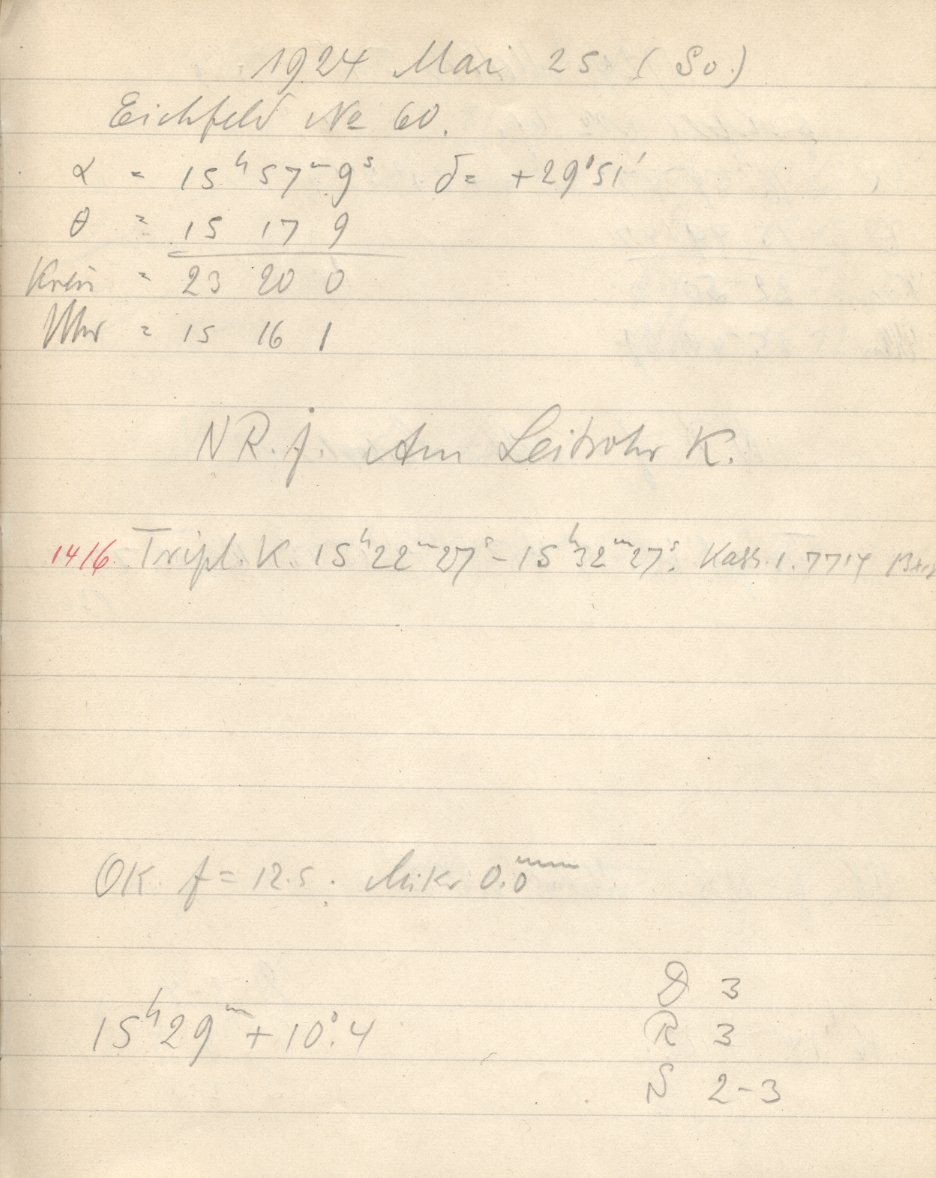 1924 Mai 25 (So.)
Eichfeld No 60.
α = 15ʰ57ᵐ9ˢ δ = +29°51'
θ = 15 17 9
Kreis = 23 20 0
Uhr = 15 16 1
NR. f. Am Leitrohr K.
1416. Tripl. K. 15ʰ22ᵐ27ˢ – 15ʰ32ᵐ27ˢ. Kass. 1.
OK f = 12.5. Mikr 0.0ᵐᵐ
15ʰ29ᵐ + 10°.4
D 3
R 3
S 2-3